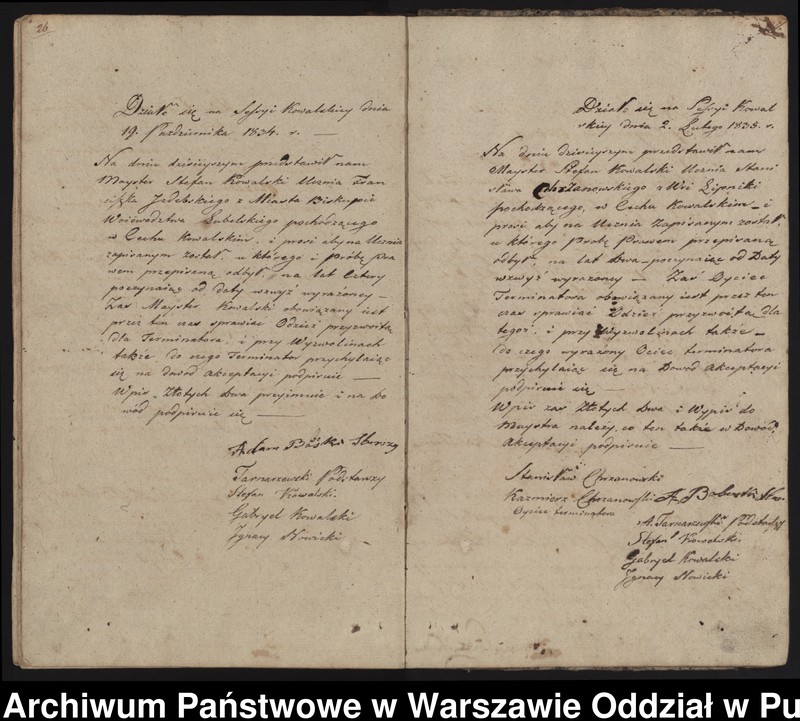 26
Działo się na Sessyi Kowalskiey dnia
19. Pazdziernika 1834. r. —
Na dniu dzisieyszym przedstawił nam
Mayster Stefan Kowalski Ucznia Fran
ciszka z Miasta Biskupic
Woiewodztwa Lubelskiego pochodzącego
w Cechu Kowalskim, i prosi aby na Ucznia
zapisanym został, u którego i Próbę Pra
wem przepisaną odbył, na lat Cztery
poczynaiąc od daty wzwyż wyrażoney —
Zaś Mayster Kowalski obowiązany iest
przez ten czas sprawiać Odzież przyzwoitą
dla Terminatora, i przy Wyzwolinach
także, do czego Terminator przychylaiąc
się na dowód Akceptacyi podpisuie —
Wpis Złotych Dwa przyimuie i na Do
wód podpisuie się —
Adam
Tarnarzewski Podstarszy
Stefan Kowalski.
Gabryel Kowalski
Jgnacy Nowicki
Działo się na Sessyi Kowal
skiey dnia 2. Lutego 1835. r.
Na dniu dzisieyszym przedstawił nam
Mayster Stefan Kowalski Ucznia Stani
sława Chrzanowskiego z Wsi Lipniki
pochodzącego, w Cechu Kowalskim — i
prosi aby na Ucznia Zapisanym został,
u którego Próbę Prawem przepisaną
odbył, na lat Dwa — poczynaiąc od Daty
wzwyż wyrażoney — Zaś Oyciec
Terminatora obowiązany iest przez ten
czas sprawiać Odzież przyzwoitą dla
tegoż, i przy Wyzwolinach także —
do czego wyrażony Ociec terminatora
przychylaiąc się na Dowód Akceptacyi
podpisuie się —
Wpis zaś Złotych Dwa i Wypis do
Maystra należy, co ten także w Dowód
Akceptacyi podpisuie —
Stanisław Chrzanowski
Kazimierz Chrzanowski A.
Oyciec terminatora
A. Tarnarzewski Podstarszy
Stefan Kowalski
Gabryel Kowalski
Jgnacy Nowicki
Archiwum Państwowe w Warszawie Oddział w Pu